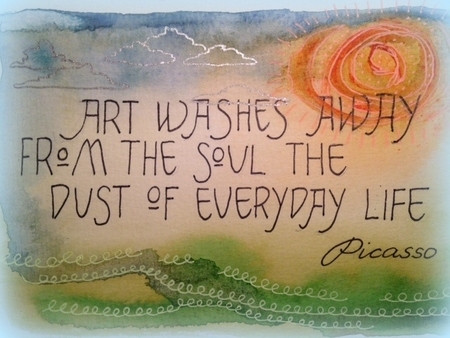 ART WASHES AWAY
FROM THE SOUL THE
DUST OF EVERYDAY LIFE
Picasso